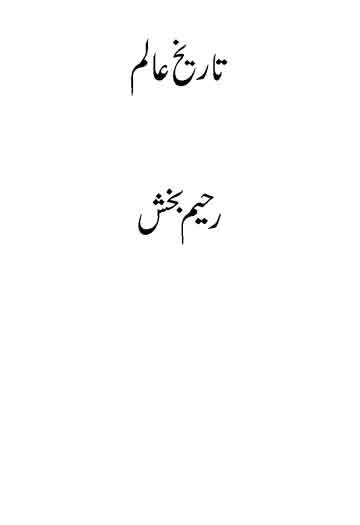 تاریخ عالم
رحیم بخش